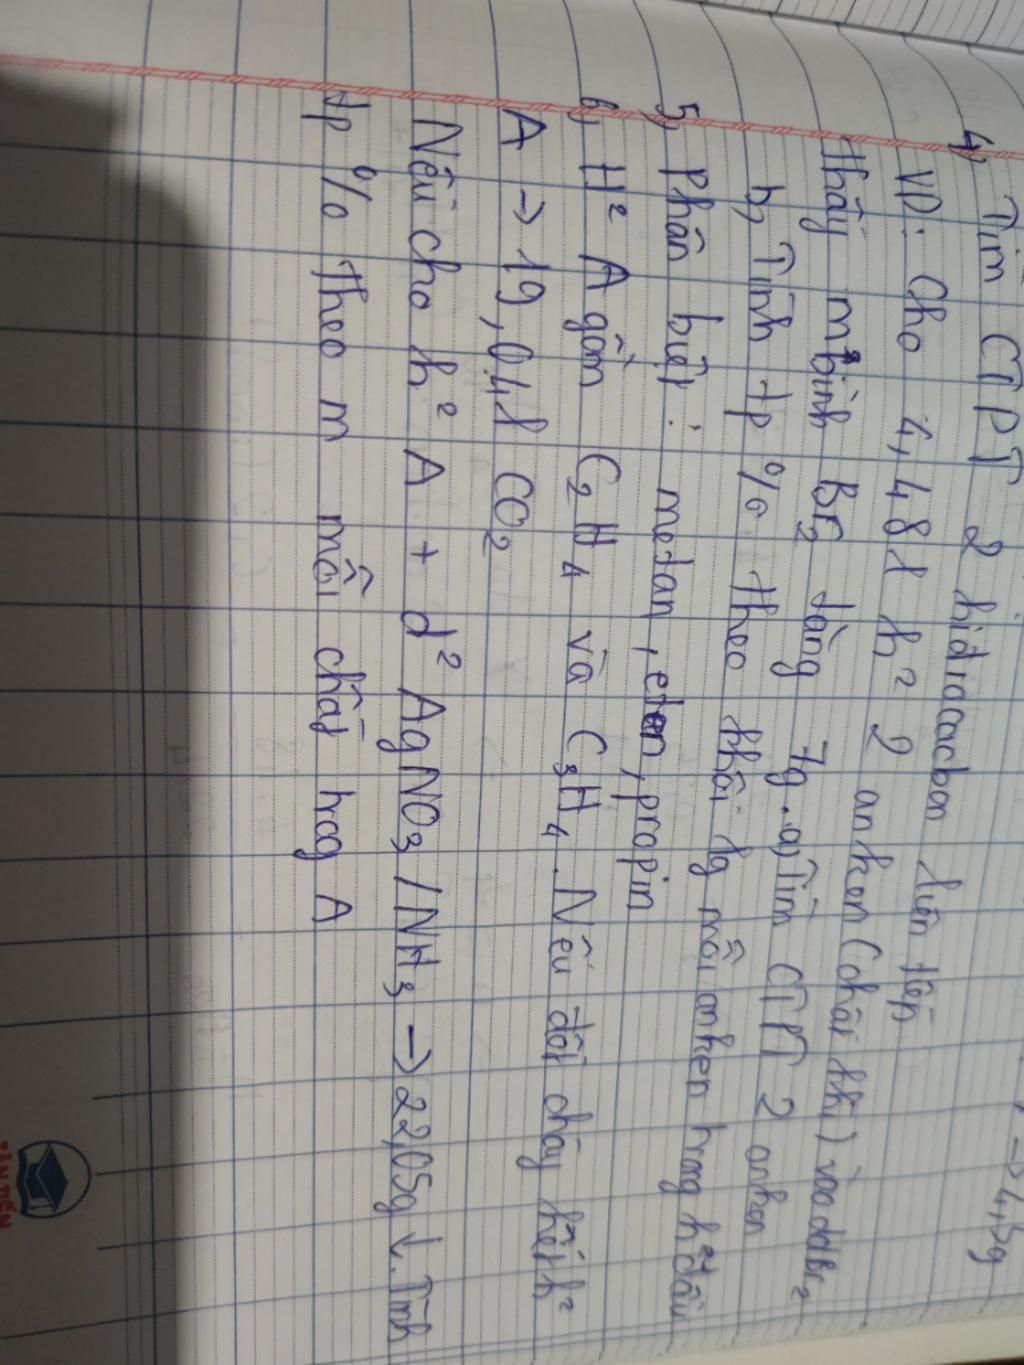 → 4,2g
4, Tìm CTPT 2 hiđrocacbon liên tiếp
VD: Cho 4,48l h² 2 anken (chất khí) vào ddBr₂
thấy m bình Br₂ tăng 7g. a, Tìm CTPT 2 anken
b, Tính tp % theo khối lg mỗi anken trong h² đầu
5, Phân biệt: metan, eten, propin
6, H² A gồm C₂H₄ và C₃H₄. Nếu đốt cháy hết h²
A → 19,04l CO₂
Nếu cho h² A + d² AgNO₃/NH₃ → 22,05g ↓. Tính
tp % theo m mỗi chất trog A
TÂN TIẾN